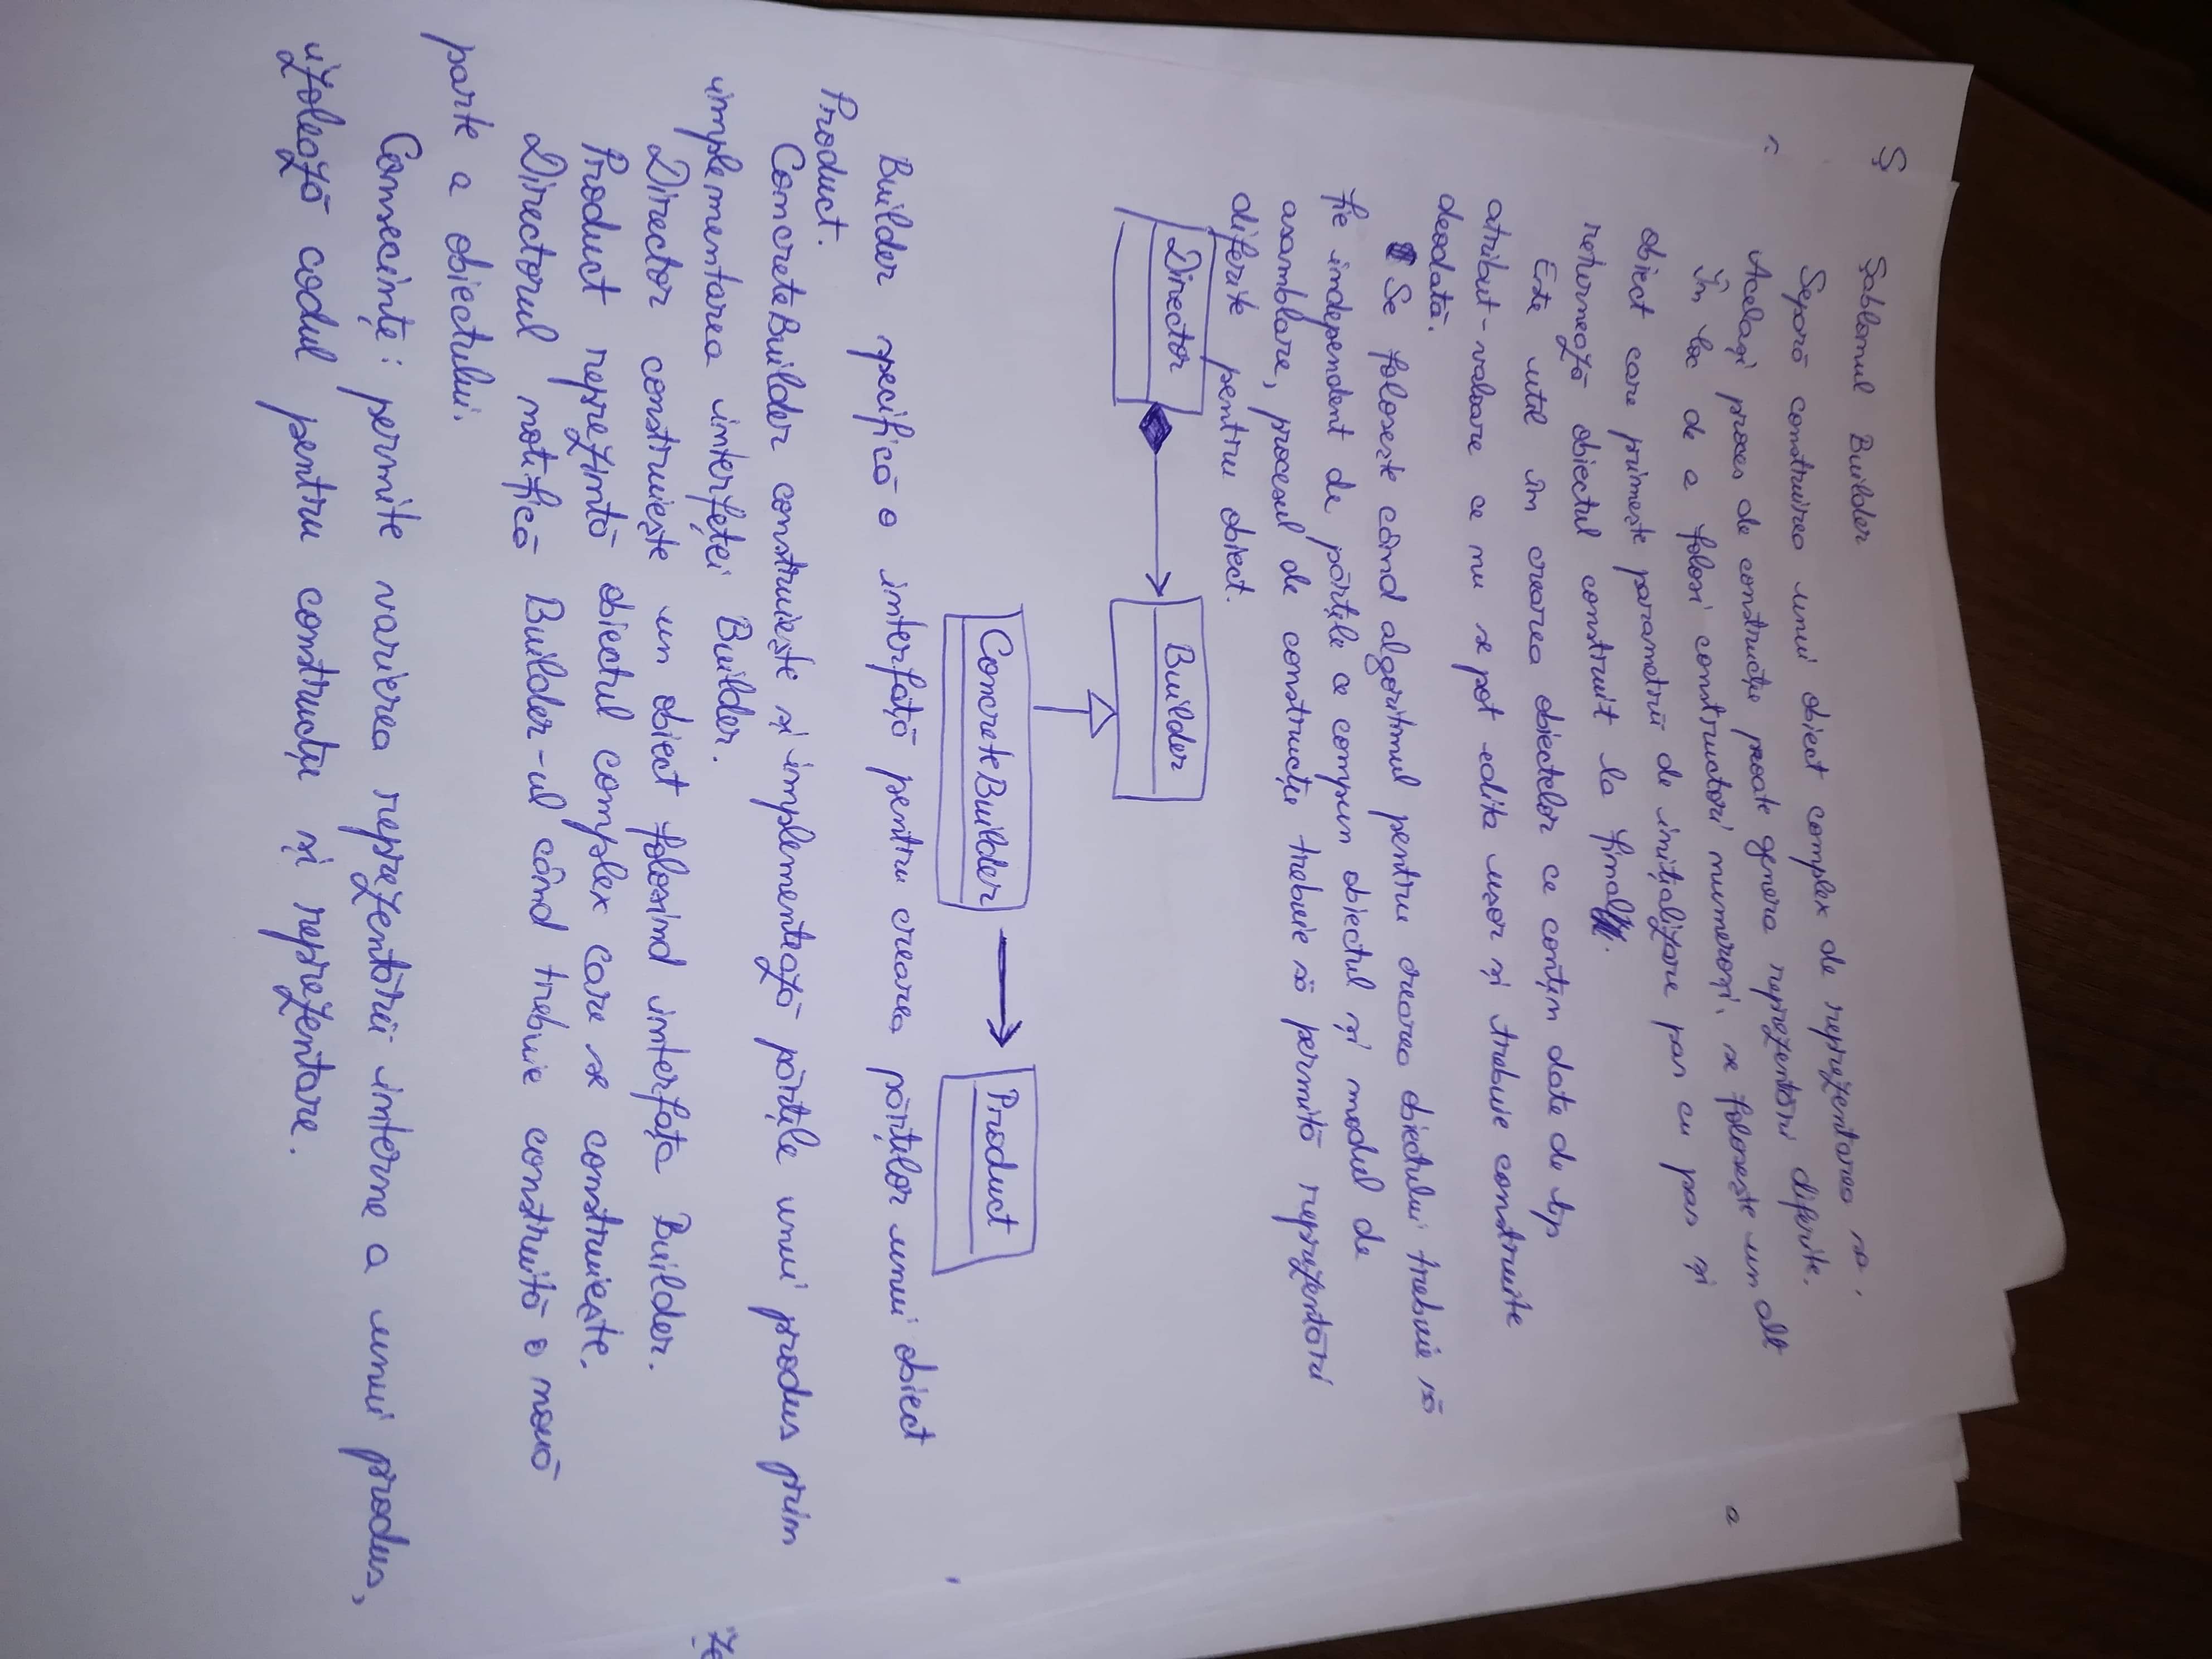 Șablonul Builder
Separă construirea unui obiect complex de reprezentarea sa.
Același proces de construcție poate genera reprezentări diferite.
În loc de a folosi constructori numeroși, se folosește un alt
obiect care primește parametrii de inițializare pas cu pas și
returnează obiectul construit la final.
Este util în crearea obiectelor ce conțin date de tip
atribut-valoare ce nu se pot edita ușor și trebuie construite
deodată.
Se folosește când algoritmul pentru crearea obiectului trebuie să
fie independent de părțile ce compun obiectul și modul de
asamblare, procesul de construcție trebuie să permită reprezentări
diferite pentru obiect.
Director
Builder
ConcreteBuilder
Product
Builder specifică o interfață pentru crearea părților unui obiect
Product.
ConcreteBuilder construiește și implementează părțile unui produs prin
implementarea interfeței Builder.
Director construiește un obiect folosind interfața Builder.
Product reprezintă obiectul complex care se construiește.
Directorul notifică Builder-ul când trebuie construită o nouă
parte a obiectului.
Consecințe: permite varierea reprezentării interne a unui produs,
izolează codul pentru construcție și reprezentare.